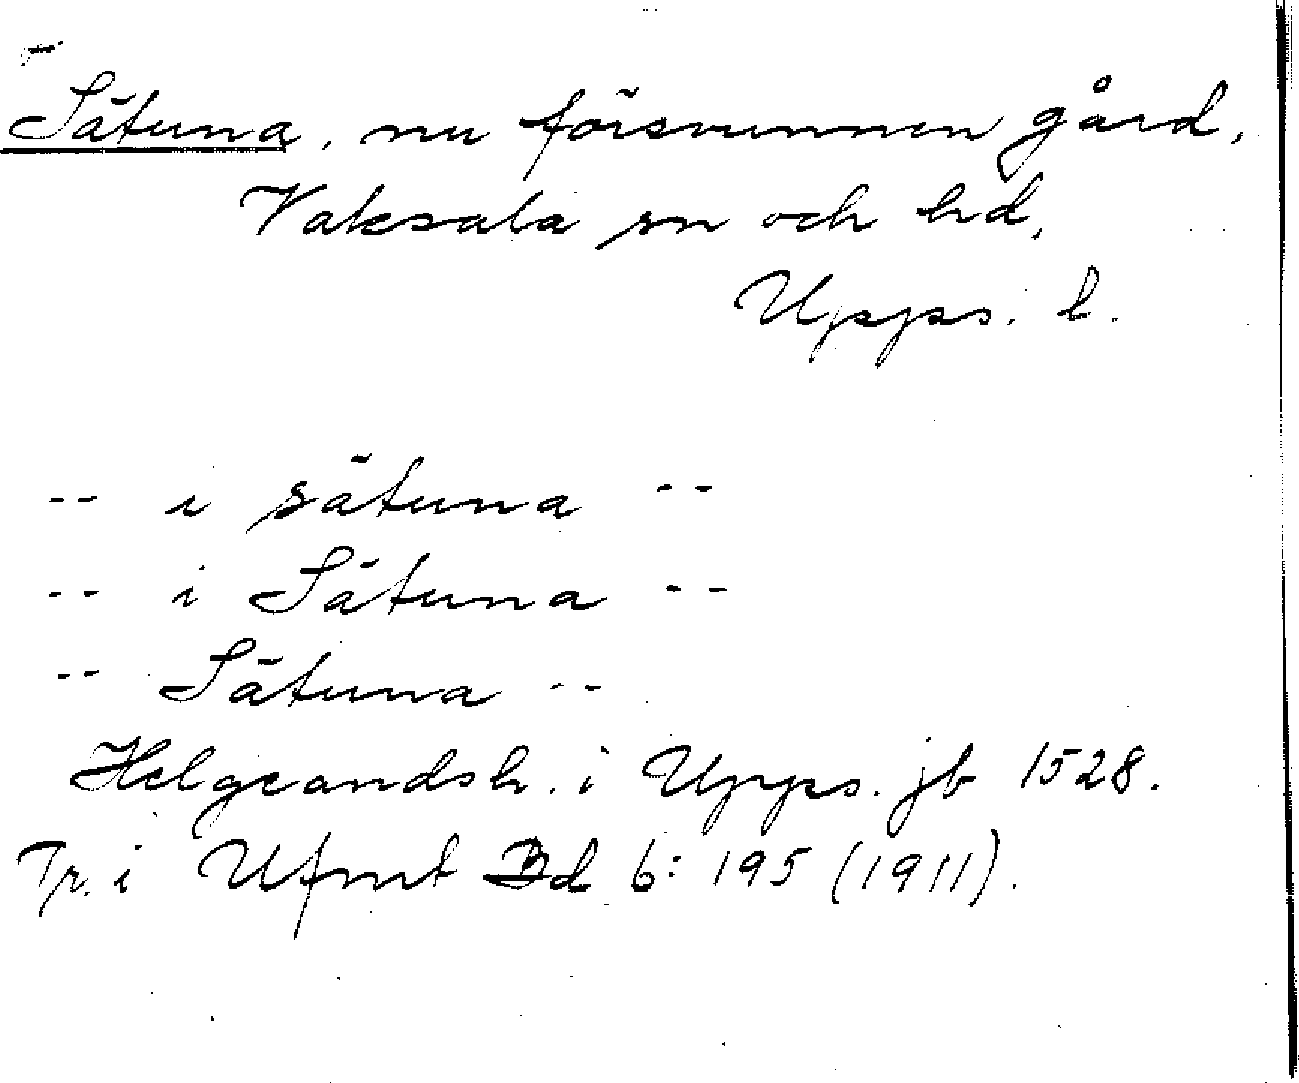 Sätuna, nu försvunnen gård,
Vaksala sn och hd,
Upps. l.
-- i sätuna --
-- i Sätuna --
-- Sätuna --
Helgeandsh. i Upps. jb 1528.
Tr. i Ufmt Bd 6: 195 (1911).